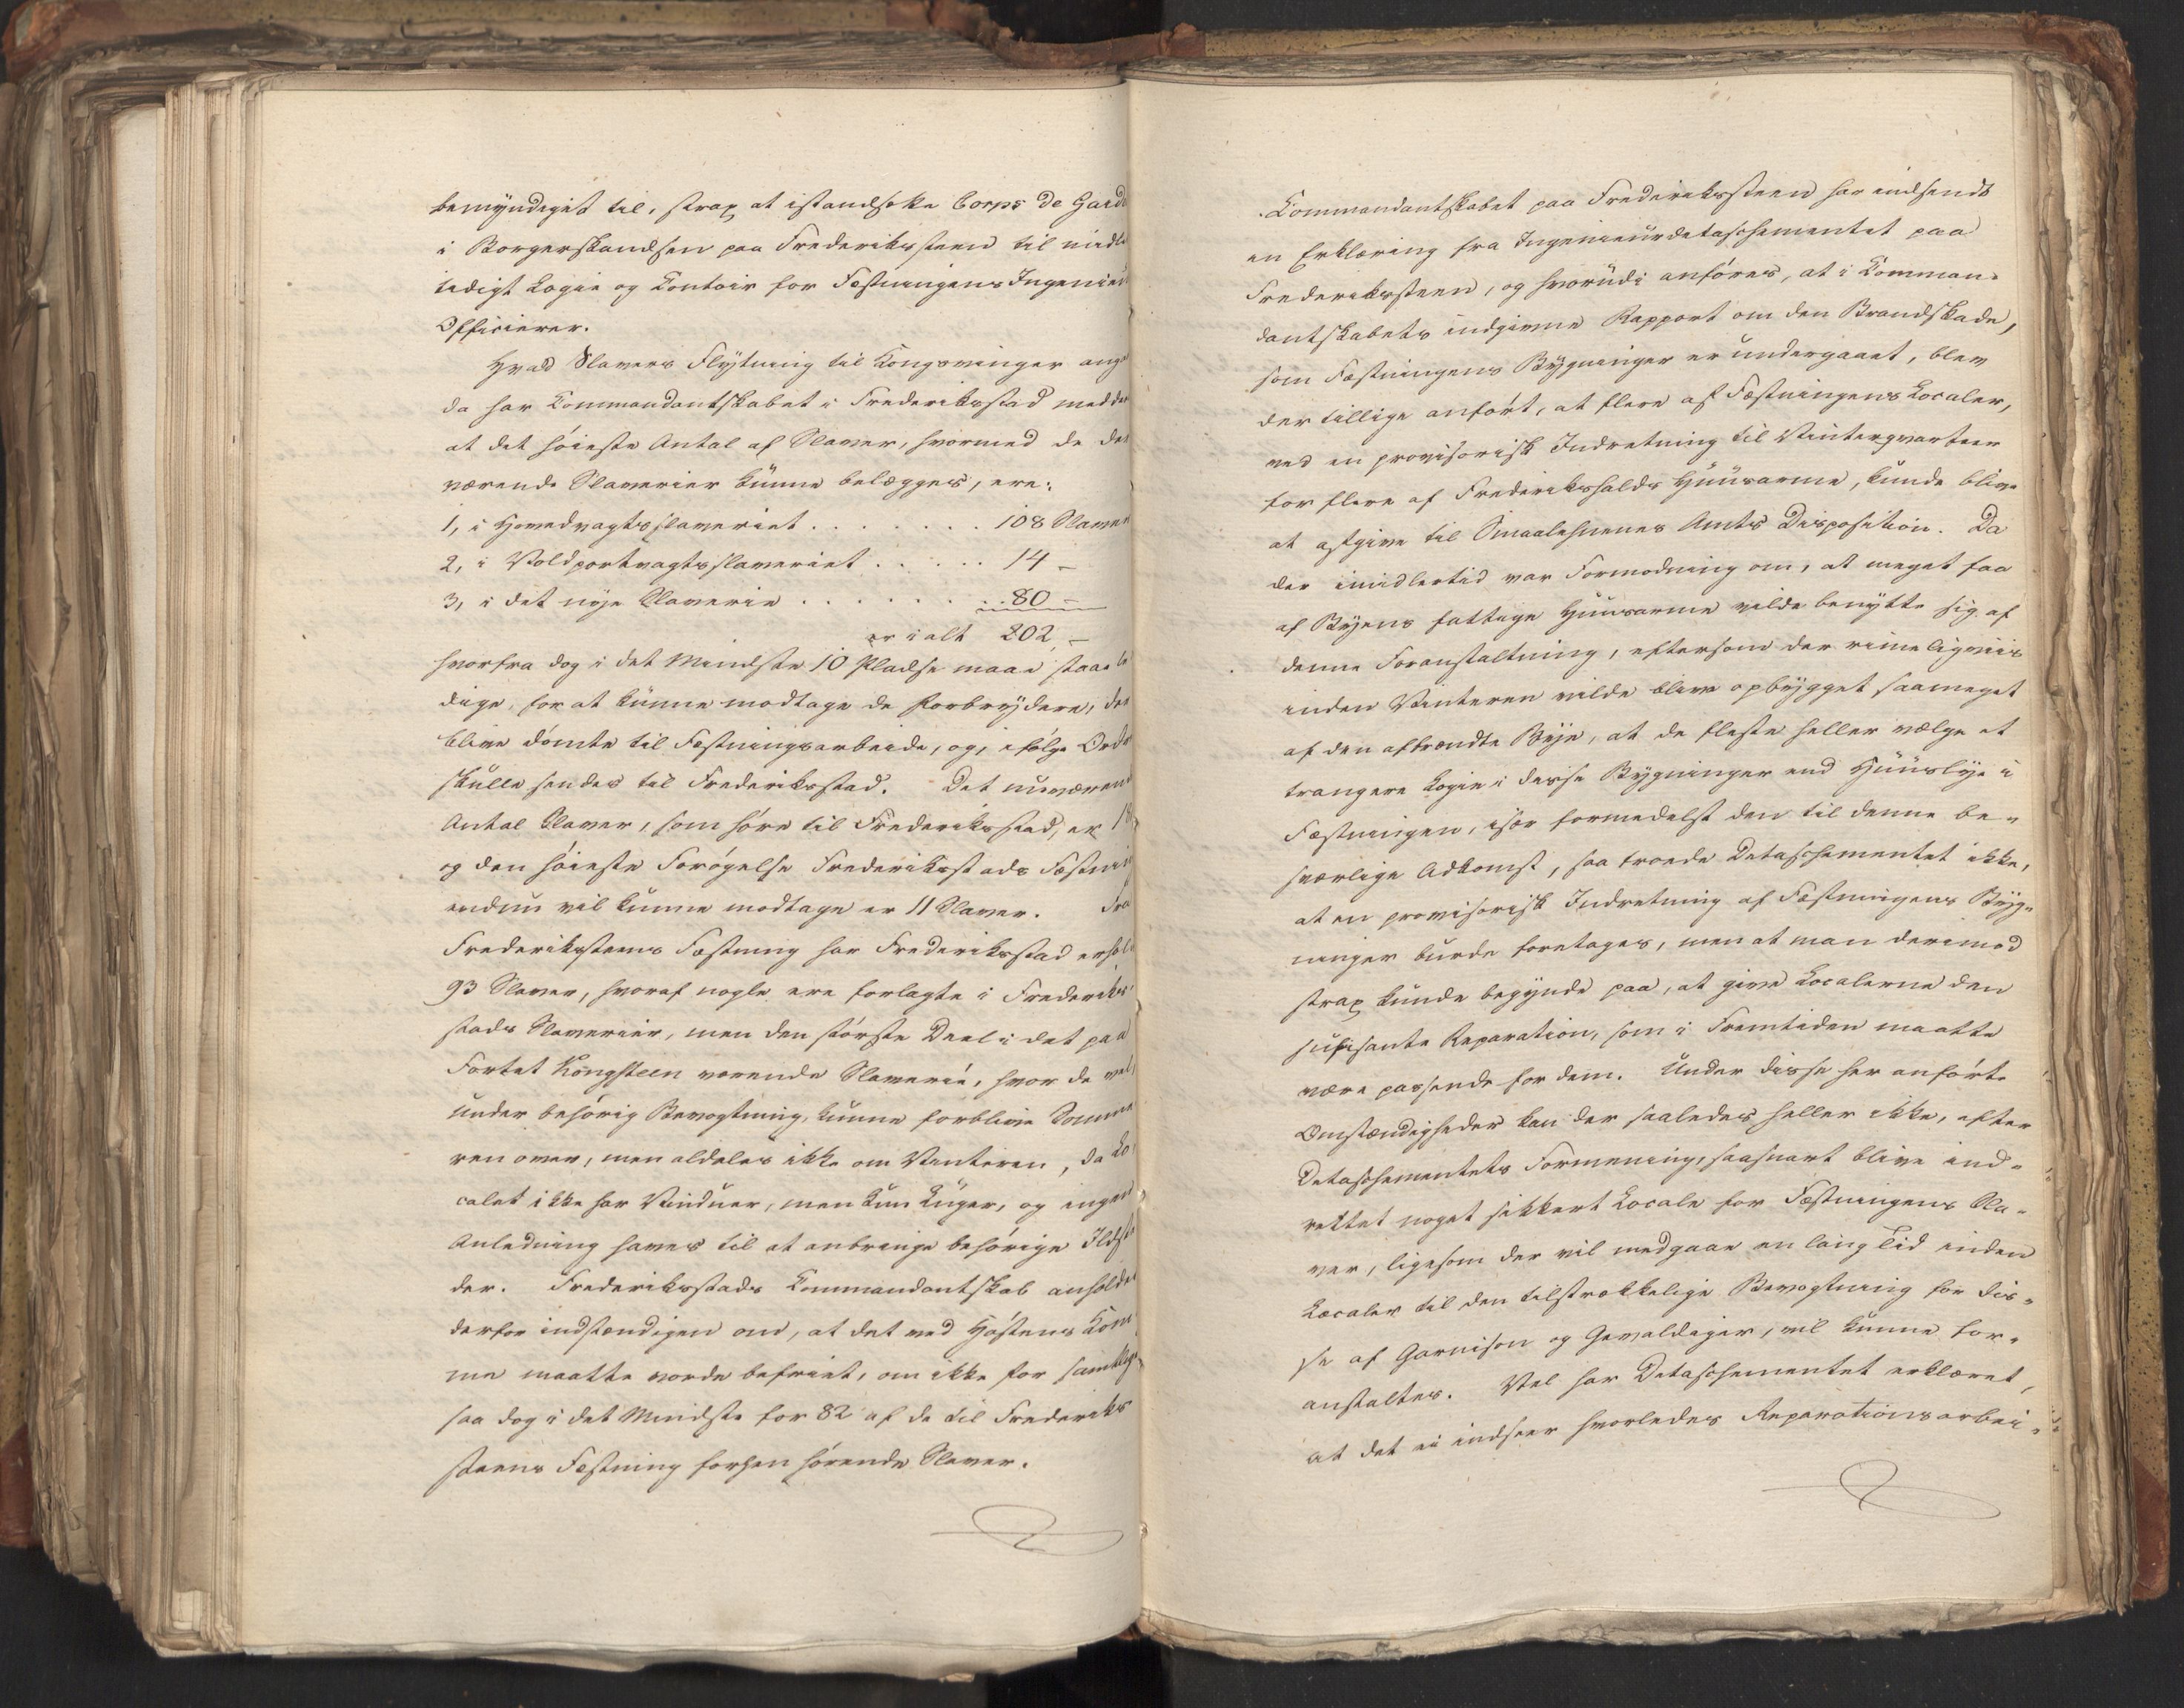 bemyndiget til, strax at istandsætte Corps de Garde
i Borgerskandsen paa Frederiksteen til midler
tidigt Logie og Contoir for Fæstningens Ingenieur
Officierer.
Hvad Slavers Flytning til Kongsvinger ang
da har Commandantskabet i Frederiksstad meddeelt
at det höieste Antal af Slaver, hvormed de der
værende Slaverier kunne belægges, ere:
1, i Hovedvagtsslaveriet . . . . . . . . 108 Slaver
2, i Voldportvagtsslaveriet . . . . . 14 -
3, i det nye Slaverie . . . . . . . . . 80 -
er i alt 202, -
hvorfra dog i det Mindste 10 Pladse maae staae le
dige, for at kunne modtage de Forbrydere, der
blive dömte til Fæstningsarbeide, og, ifölge Ordre
skulle sendes til Frederiksstad. Det nuværende
Antal Slaver, som höre til Frederiksstad, er
og den höieste Forögelse Frederiksstads Fæstning
endnu vil kunne modtage er 11 Slaver. Fra
Frederikssteens Fæstning har Frederiksstad erholdt
93 Slaver, hvoraf nogle ere forlagte i Frederiks
stads Slaverier, men den störste Deel i det paa
Fortet Kongsteen værende Slaverie, hvor de vel,
under behörig Bevogtning, kunne forblive Somme
ren over, men aldeles ikke om Vinteren, da Lo
calet ikke har Vinduer, men kun Luger, og ingen
Anledning haves til at anbringe behörige Ildste
der. Frederiksstads Commandantskab anholder
derfor indstændigen om, at det ved Höstens Kom
me maatte vorde befriet, om ikke for samtlige
saa dog i det Mindste for 82 af de til Frederiks
steens Fæstning forhen hörende Slaver.
Commandantskabet paa Frederikssteen har indsendt
en Erklæring fra Ingenieurdetaschementet paa
Frederikssteen, og hvorudi anföres, at i Comman-
dantskabets indgivne Rapport om den Brandskade,
som Fæstningens Bygninger er undergaaet, blev
der tillige anfört, at flere af Fæstningens Localer,
ved en provisorisk Indretning til Vinterqvarteer
for flere af Frederikshalds Huusarme, kunde blive
at afgive til Smaalehnenes Amts Disposition. Da
der imidlertid var Formodning om, at meget faa
af Byens fattige Huusarme vilde benytte sig af
denne Foranstaltning, eftersom der rimeligviis
inden Vinteren vilde blive opbygget saameget
af den afbrændte Bye, at de fleste heller vælge et
trangere Logie i disse Bygninger end Huuslye i
Fæstningen, især formedelst den til denne be-
sværlige Adkomst, saa troede Detaschementet ikke,
at en provisorisk Indretning af Fæstningens Byg-
ninger burde foretages, men at man derimod
strax kunde begynde paa, at give Localerne den
sufisante Reparation, som i Fremtiden maatte
være passende for dem. Under disse her anförte
Omstændigheder kan der saaledes heller ikke, efter
Detaschementets Formening, saasnart blive ind-
rettet noget sikkert Locale for Fæstningens Sla-
ver, ligesom der vil medgaae en lang Tid inden
Localer til den tilstrækkelige Bevogtning for dis-
se af Garnison og Gevaldiger, vil kunne for-
anstaltes. Vel har Detaschementet erklæret,
at det ei indseer hvorledes Reparationsarbei-